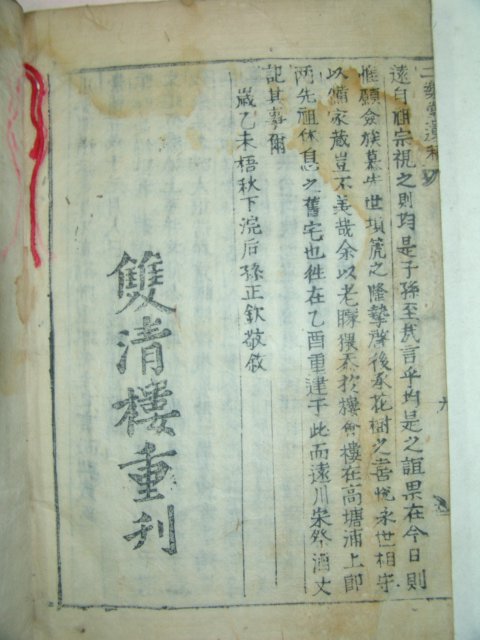 遠自祖宗視之則均是子孫至哉言乎均是之誼果在今日則
惟願僉族慕先世塤篪之隆摯 後承花樹之喜悅永世相守
以備家藏豈不美哉余以老 猥忝於樓會樓在高塘浦上卽
两先祖休息之舊宅也徃在乙酉重建于此而遠川宋 酒丈
記其事爾
歲乙未梧秋下浣后孫正欽敬敘
雙清樓重刋